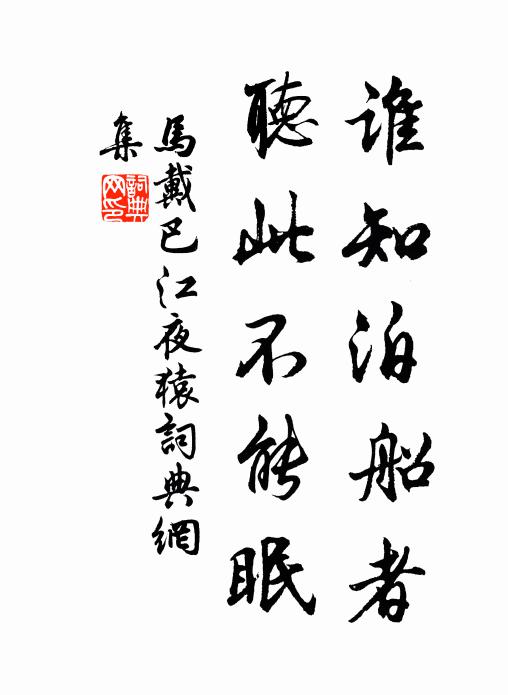 誰知泊船者
聽此不能眠
馬戴巴江夜猿詞典網
集
詞典
网印